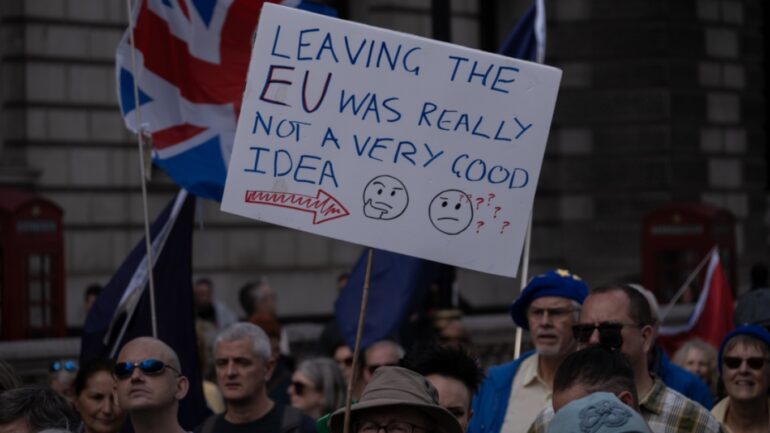 LEAVING THE
EU WAS REALLY
NOT A VERY GOOD
IDEA
? ? ?
? ? ?